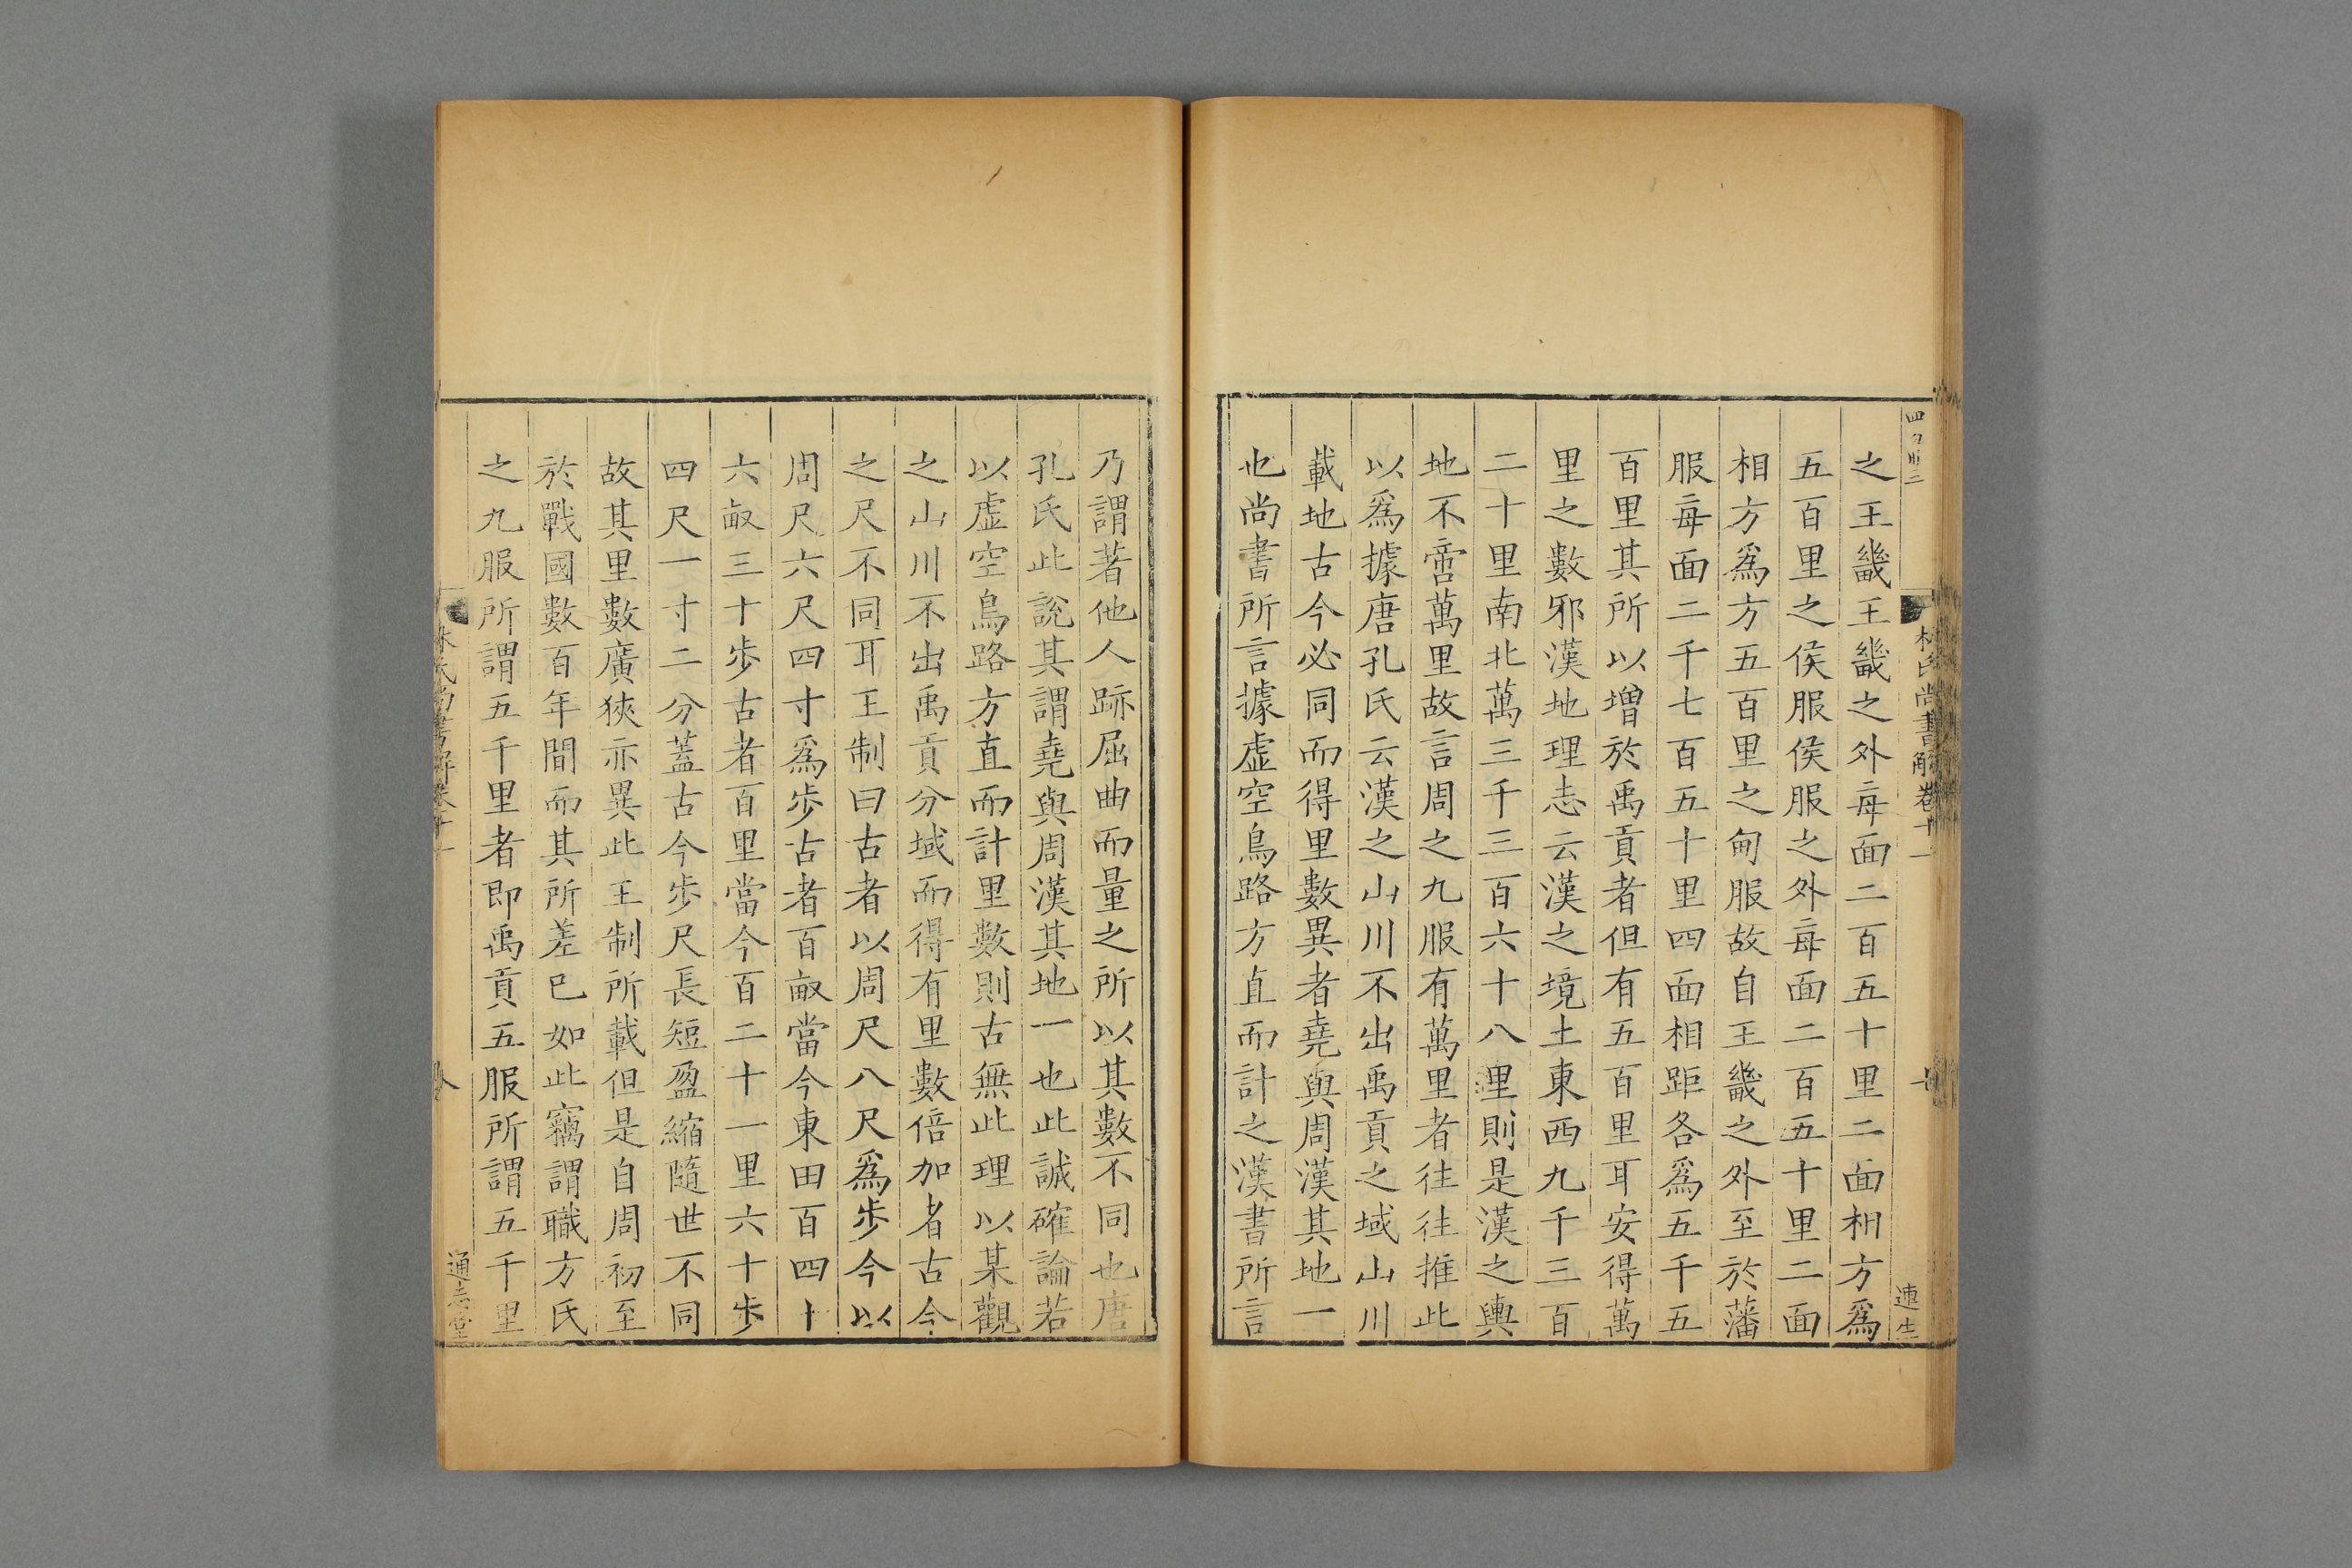 林氏尚書解卷十一
之王畿王畿之外每面二百五十里二面相方爲
五百里之侯服侯服之外每面二百五十里二面
相方爲方五百里之甸服故自王畿之外至於藩
服每面二千七百五十里四面相距各爲五千五
百里其所以增於禹貢者但有五百里耳安得萬
里之數邪漢地理志云漢之境土東西九千三百
二十里南北萬三千三百六十八里則是漢之輿
地不啻萬里故言周之九服有萬里者往往推此
以爲據唐孔氏云漢之山川不出禹貢之域山川
載地古今必同而得里數異者堯與周漢其地一
也尚書所言據虛空鳥路方直而計之漢書所言
乃謂著他人跡屈曲而量之所以其數不同也唐
孔氏此說其謂堯與周漢其地一也此誠確論若
以虛空鳥路方直而計里數則古無此理以某觀
之山川不出禹貢分域而得有里數倍加者古今
之尺不同耳王制曰古者以周尺八尺爲步今以
周尺六尺四寸爲步古者百畝當今東田百四十
六畝三十步古者百里當今百二十一里六十步
四尺一寸二分蓋古今步尺長短盈縮隨世不同
故其里數廣狹亦異此王制所載但是自周初至
於戰國數百年間而其所差已如此竊謂職方氏
之九服所謂五千里者即禹貢五服所謂五千里
通志堂